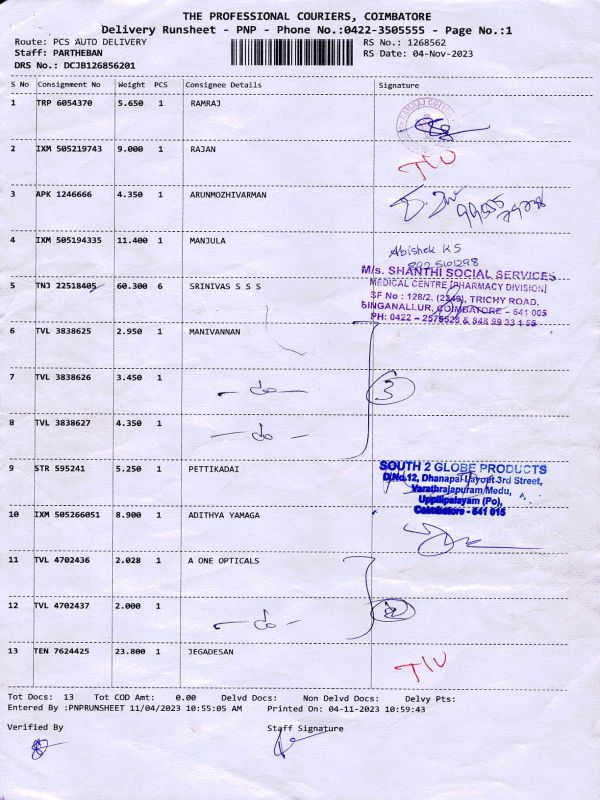 THE PROFESSIONAL COURIERS, COIMBATORE
Delivery Runsheet - PNP - Phone No.:0422-3505555 - Page No.:1
Route: PCS AUTO DELIVERY RS No.: 1268562
Staff: PARTHEBAN RS Date: 04-Nov-2023
DRS No.: DCJB126856201
S No Consignment No Weight PCS Consignee Details Signature
1 TRP 6054370 5.650 1 RAMRAJ
2 IXM 505219743 9.000 1 RAJAN
3 APK 1246666 4.350 1 ARUNMOZHIVARMAN
4 IXM 505194335 11.400 1 MANJULA
Abishek KS
M/s. SHANTHI SOCIAL SERVICES
5 TNJ 22518405 60.300 6 SRINIVAS S S S
MEDICAL CENTRE [PHARMACY DIVISION]
SF No : 128/2, (2949), TRICHY ROAD,
SINGANALLUR, COIMBATORE - 641 005
PH: 0422 -
6 TVL 3838625 2.950 1 MANIVANNAN
7 TVL 3838626 3.450 1
-do-
3
8 TVL 3838627 4.350 1
-do-
9 STR 595241 5.250 1 PETTIKADAI
SOUTH 2 GLOBE PRODUCTS
D.No.12, Dhanapal Layout-3rd Street,
Varathrajapuram Medu,
Uppilipalayam (Po),
Coimbatore - 641 015
10 IXM 505266051 8.900 1 ADITHYA YAMAGA
11 TVL 4702436 2.028 1 A ONE OPTICALS
12 TVL 4702437 2.000 1
-do-
13 TEN 7624425 23.800 1 JEGADESAN
Tot Docs: 13 Tot COD Amt: 0.00 Delvd Docs: Non Delvd Docs: Delvy Pts:
Entered By :PNPRUNSHEET 11/04/2023 10:55:05 AM Printed On: 04-11-2023 10:59:43
Verified By Staff Signature